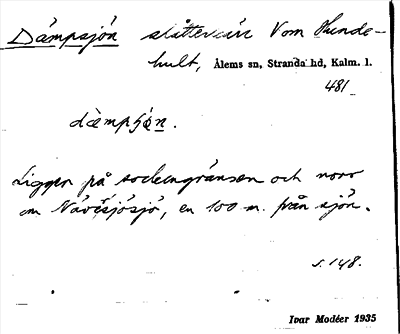 Dämpsjön slåttervär Vom Hunde-
hult, Ålems sn, Stranda hd, Kalm. l.
481
dämpsjön.
Ligger på sockengränsen och norr
om Nävisjösjö, en 100 m. från sjön.
s. 148.
Ivar Modéer 1935